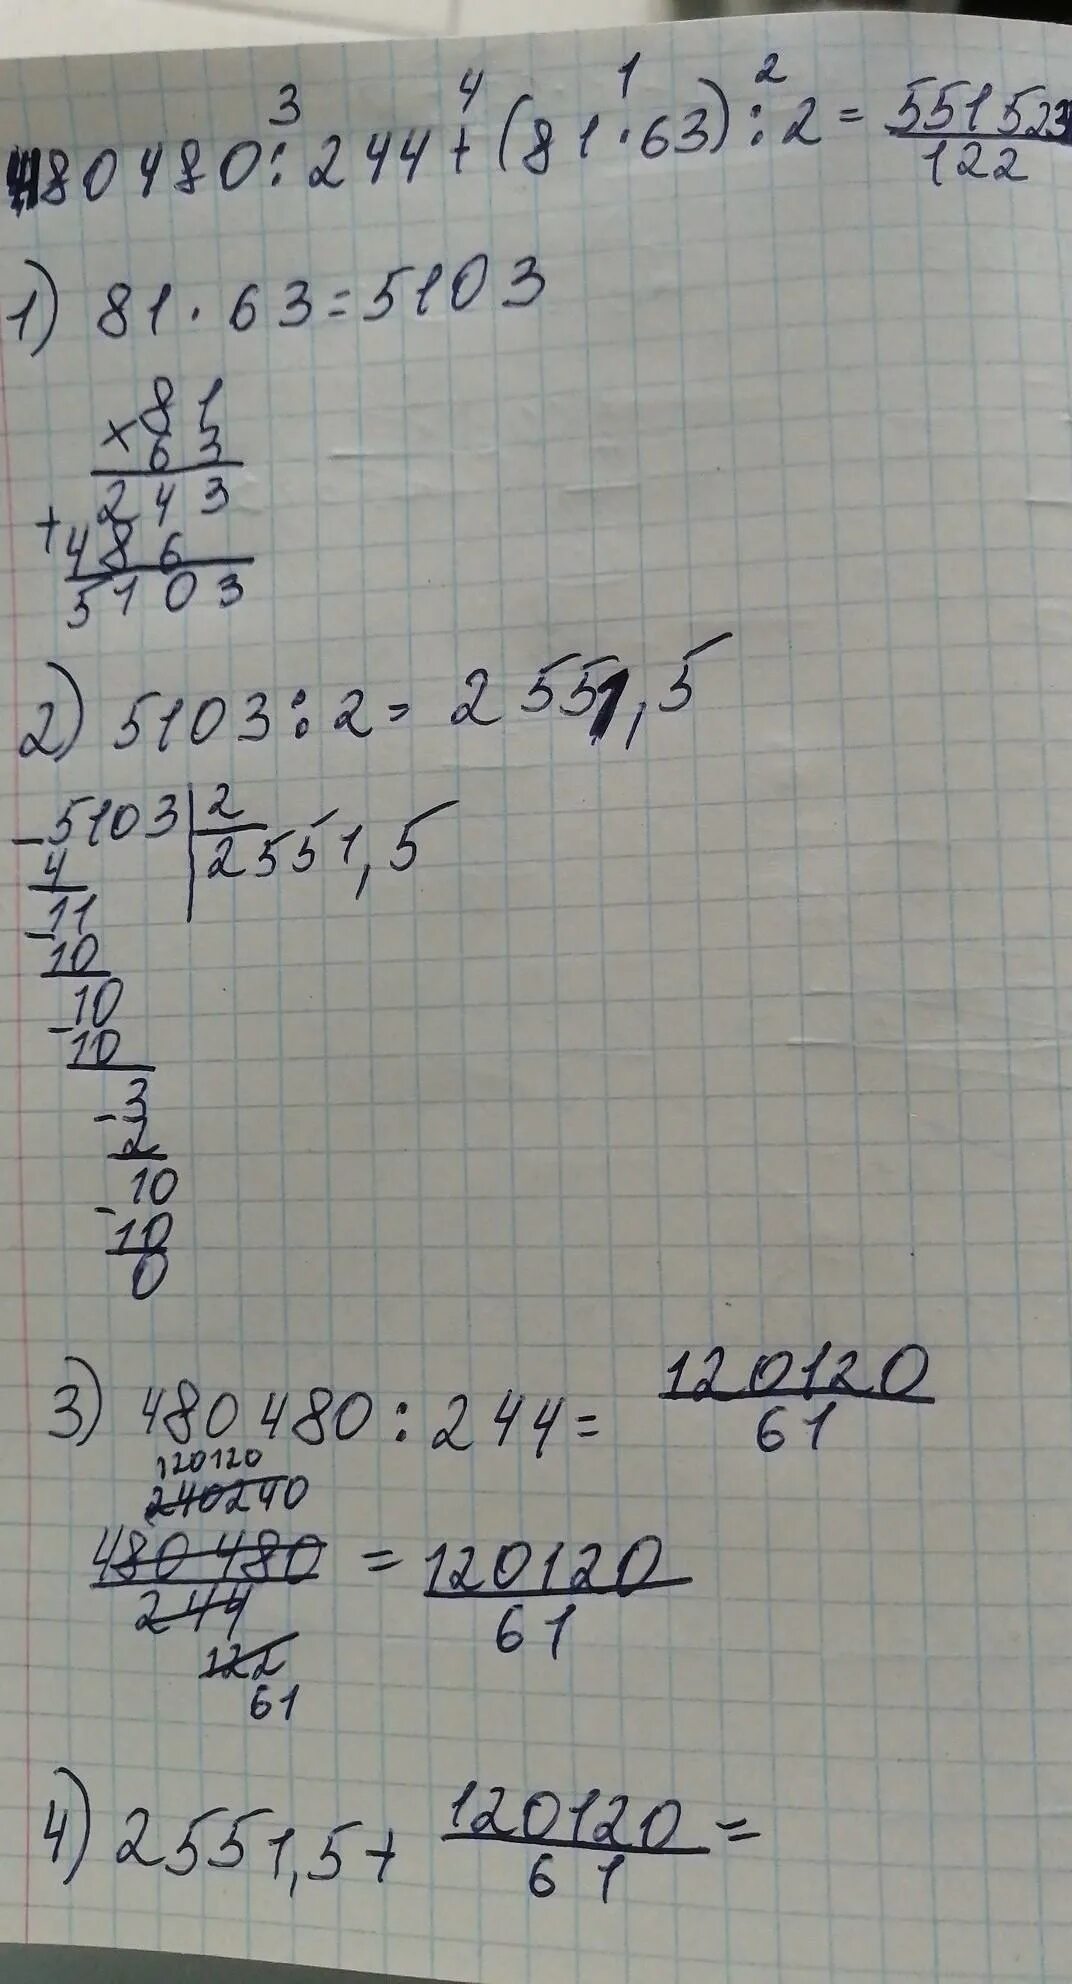 3 4 1 2
480480:244+(81·63):2=551523/122
1) 81·63=5103
×81
63
243
+486
5103
2) 5103:2=2551,5
-5103|2
4 2551,5
-11
10
-10
10
-3
2
10
-10
0
3) 480480:244=120120/61
120120
240240
480480/244=120120/61
122
61
4) 2551,5+120120/61=